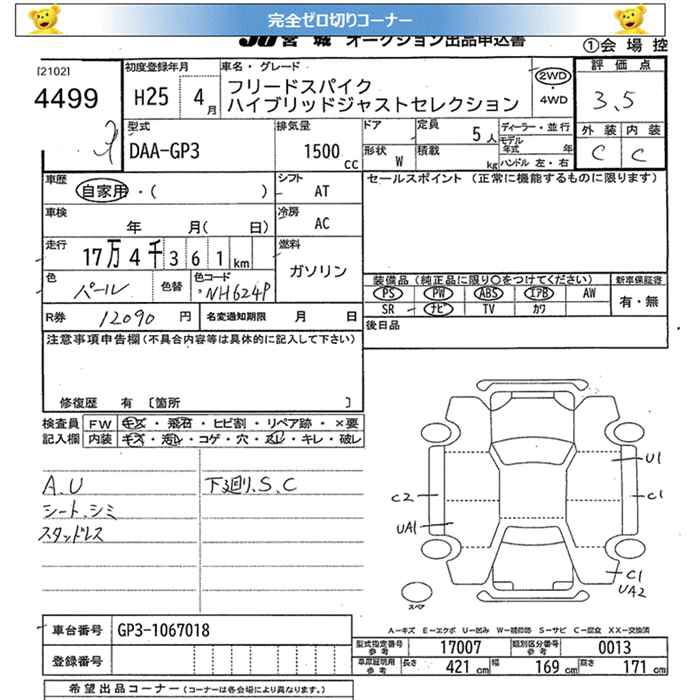 完全ゼロ切りコーナー
JU宮城 オークション出品申込書
①会場控
[2102]
4499
初度登録年月
H25 4月
車名・グレード
フリードスパイク
ハイブリッドジャストセレクション
2WD
・4WD
評価点
3.5
外装 内装
C C
型式
DAA-GP3
排気量
1500cc
ドア
形状 W
定員 5人
積載 kg
ディーラー・並行
モデル年式 年
ハンドル 左・右
車歴
自家用・( )
シフト
AT
セールスポイント (正常に機能するものに限ります)
車検
年 月( 日)
冷房
AC
走行
17万4千361km
燃料
ガソリン
色
パール
色替
色コード
NH624P
装備品(純正品に限り○をつけてください)
新車保証書
PS PW ABS エアB AW
有・無
SR ナビ TV カワ
R券 12090円
名変通知期限 月 日
後日品
注意事項申告欄(不具合内容等は具体的に記入して下さい)
修復歴 有 〔箇所 〕
検査員記入欄
FW キズ・飛石・ヒビ割・リペア跡・×要
内装 キズ・汚レ・コゲ・穴・スレ・キレ・破レ
A.U
シート.シミ
スタッドレス
下廻り.S.C
U1
C2
C1
UA1
C1
UA2
スペア
A-キズ E-エクボ U-凹み W-補修跡 S-サビ C-腐食 XX-交換済
車台番号 GP3-1067018
登録番号
型式指定番号参考 17007
類別区分番号参考 0013
車庫証明用参考 長さ 421cm 幅 169cm 高さ 171cm
希望出品コーナー(コーナーは各会場により異なります。)